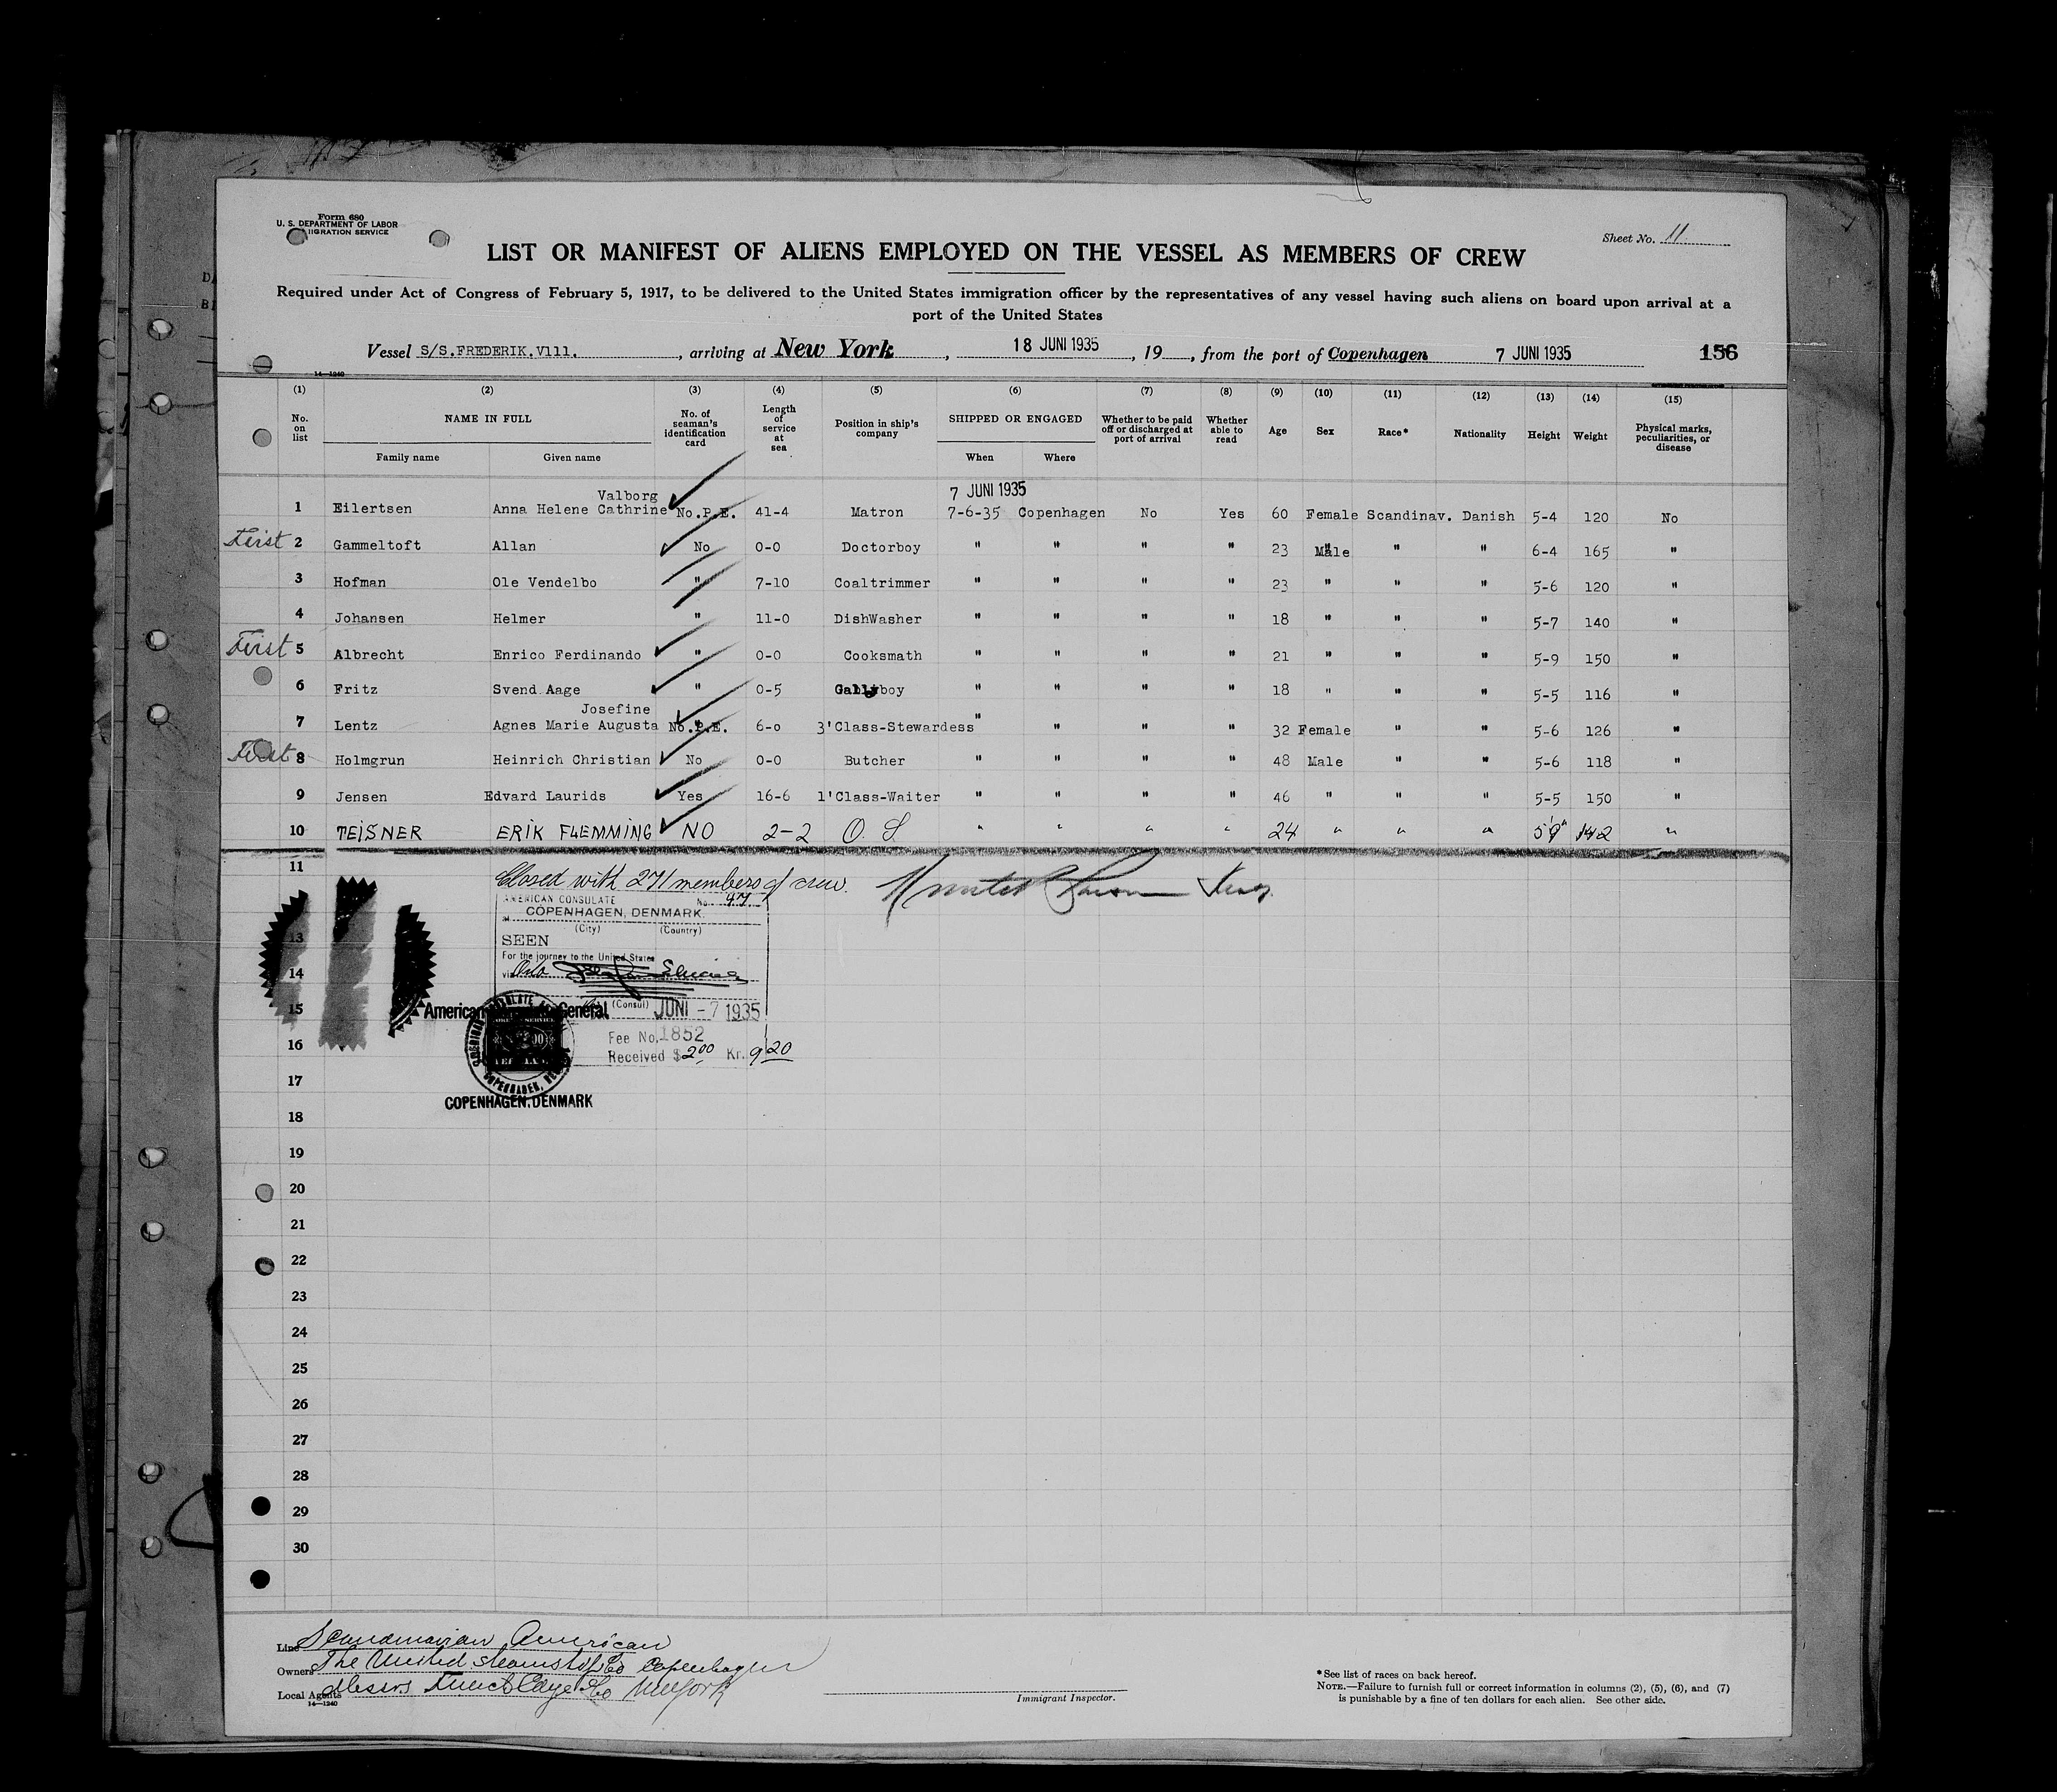 Form 680
U. S. DEPARTMENT OF LABOR
IIGRATION SERVICE
Sheet No. 11
LIST OR MANIFEST OF ALIENS EMPLOYED ON THE VESSEL AS MEMBERS OF CREW
Required under Act of Congress of February 5, 1917, to be delivered to the United States immigration officer by the representatives of any vessel having such aliens on board upon arrival at a
port of the United States
Vessel S/S.FREDERIK.Vlll. , arriving at New York , 18 JUNI 1935 , 19 , from the port of Copenhagen 7 JUNI 1935 156
14—1240
(1) (2) (3) (4) (5) (6) (7) (8) (9) (10) (11) (12) (13) (14) (15)
No. on list NAME IN FULL Family name Given name No. of seaman's identification card Length of service at sea Position in ship's company SHIPPED OR ENGAGED When Where Whether to be paid off or discharged at port of arrival Whether able to read Age Sex Race* Nationality Height Weight Physical marks, peculiarities, or disease
Valborg 7 JUNI 1935
1 Eilertsen Anna Helene Cathrine No.P.E. 41-4 Matron 7-6-35 Copenhagen No Yes 60 Female Scandinav. Danish 5-4 120 No
First 2 Gammeltoft Allan No 0-0 Doctorboy " " " " 23 Male " " 6-4 165 "
3 Hofman Ole Vendelbo " 7-10 Coaltrimmer " " " " 23 " " " 5-6 120 "
4 Johansen Helmer " 11-0 DishWasher " " " " 18 " " " 5-7 140 "
First 5 Albrecht Enrico Ferdinando " 0-0 Cooksmath " " " " 21 " " " 5-9 150 "
6 Fritz Svend Aage " 0-5 Gallyboy " " " " 18 " " " 5-5 116 "
Josefine
7 Lentz Agnes Marie Augusta No.P.E. 6-o 3'Class-Stewardess " " " " 32 Female " " 5-6 126 "
First 8 Holmgrun Heinrich Christian No 0-0 Butcher " " " " 48 Male " " 5-6 118 "
9 Jensen Edvard Laurids Yes 16-6 1'Class-Waiter " " " " 46 " " " 5-5 150 "
10 TEISNER ERIK FLEMMING NO 2-2 O. S " " " " 24 " " " 5'9" 142 "
11
Closed with 271 members of crew.
AMERICAN CONSULATE No.
COPENHAGEN, DENMARK.
(City) (Country)
13
SEEN
For the journey to the United States
14
via Oslo
(Consul)
15 American General JUNI -7 1935
Fee No. 1852
16 Received $2.00 Kr. 9 20
17
COPENHAGEN, DENMARK
18
19
20
21
22
23
24
25
26
27
28
29
30
Line Scandinavian American
Owners The United Steamship Co Copenhagen
Local Agents Messrs Funch Edye & Co New York
14—1240
Immigrant Inspector.
* See list of races on back hereof.
NOTE.—Failure to furnish full or correct information in columns (2), (5), (6), and (7)
is punishable by a fine of ten dollars for each alien. See other side.